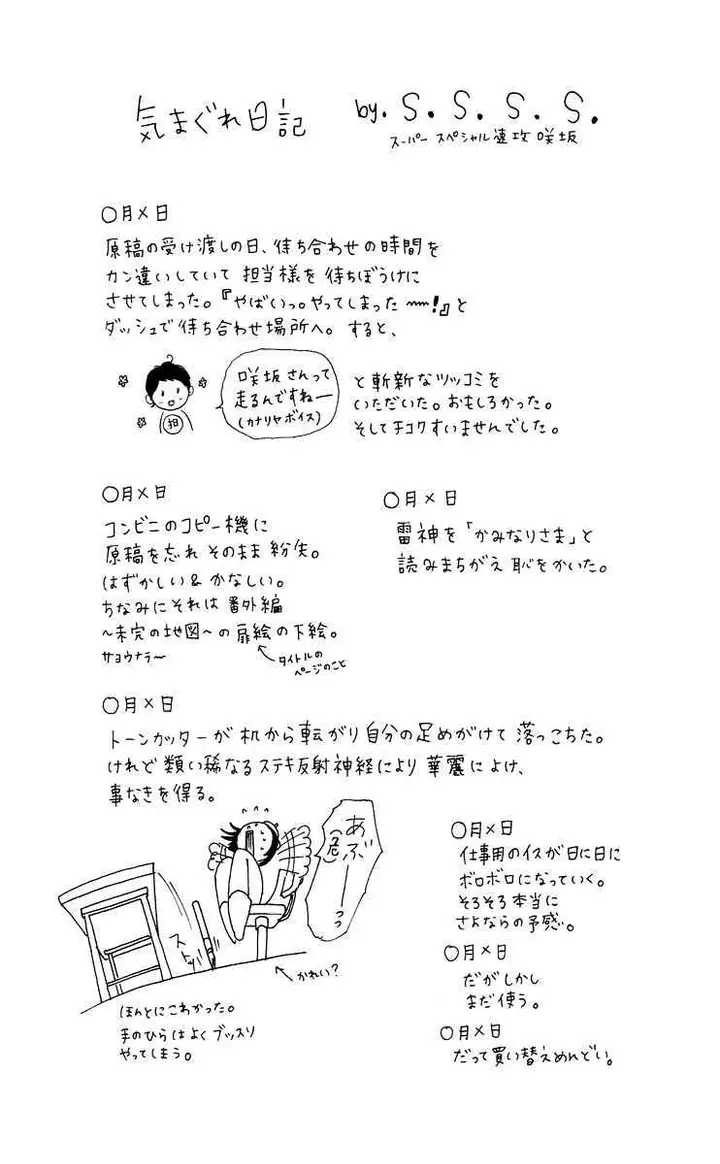 気まぐれ日記
by. S. S. S. S.
スーパー スペシャル速攻咲坂
〇月×日
原稿の受け渡しの日、待ち合わせの時間を
カン違いしていて 担当様を待ちぼうけに
させてしまった。『やばいっ。やってしまった〰〰!』と
ダッシュで待ち合わせ場所へ。すると、
担
咲坂さんって
走るんですねー
(カナリヤボイス)
と斬新なツッコミを
いただいた。おもしろかった。
そしてチコクすいませんでした。
〇月×日
コンビニのコピー機に
原稿を忘れ そのまま紛失。
はずかしい&かなしい。
ちなみにそれは番外編
~未完の地図~の扉絵の下絵。
サヨウナラ~
タイトルの
ページのこと
〇月×日
雷神を「かみなりさま」と
読みまちがえ恥をかいた。
〇月×日
トーンカッターが机から転がり自分の足めがけて落っこちた。
けれど類い稀なるステキ反射神経により華麗によけ、
事なきを得る。
あぶ
危
ーーっっ
ストッ
かれい?
ほんとにこわかった。
手のひらはよくブッスリ
やってしまう。
〇月×日
仕事用のイスが日に日に
ボロボロになっていく。
そろそろ本当に
さよならの予感。
〇月×日
だがしかし
まだ使う。
〇月×日
だって買い替えめんどい。